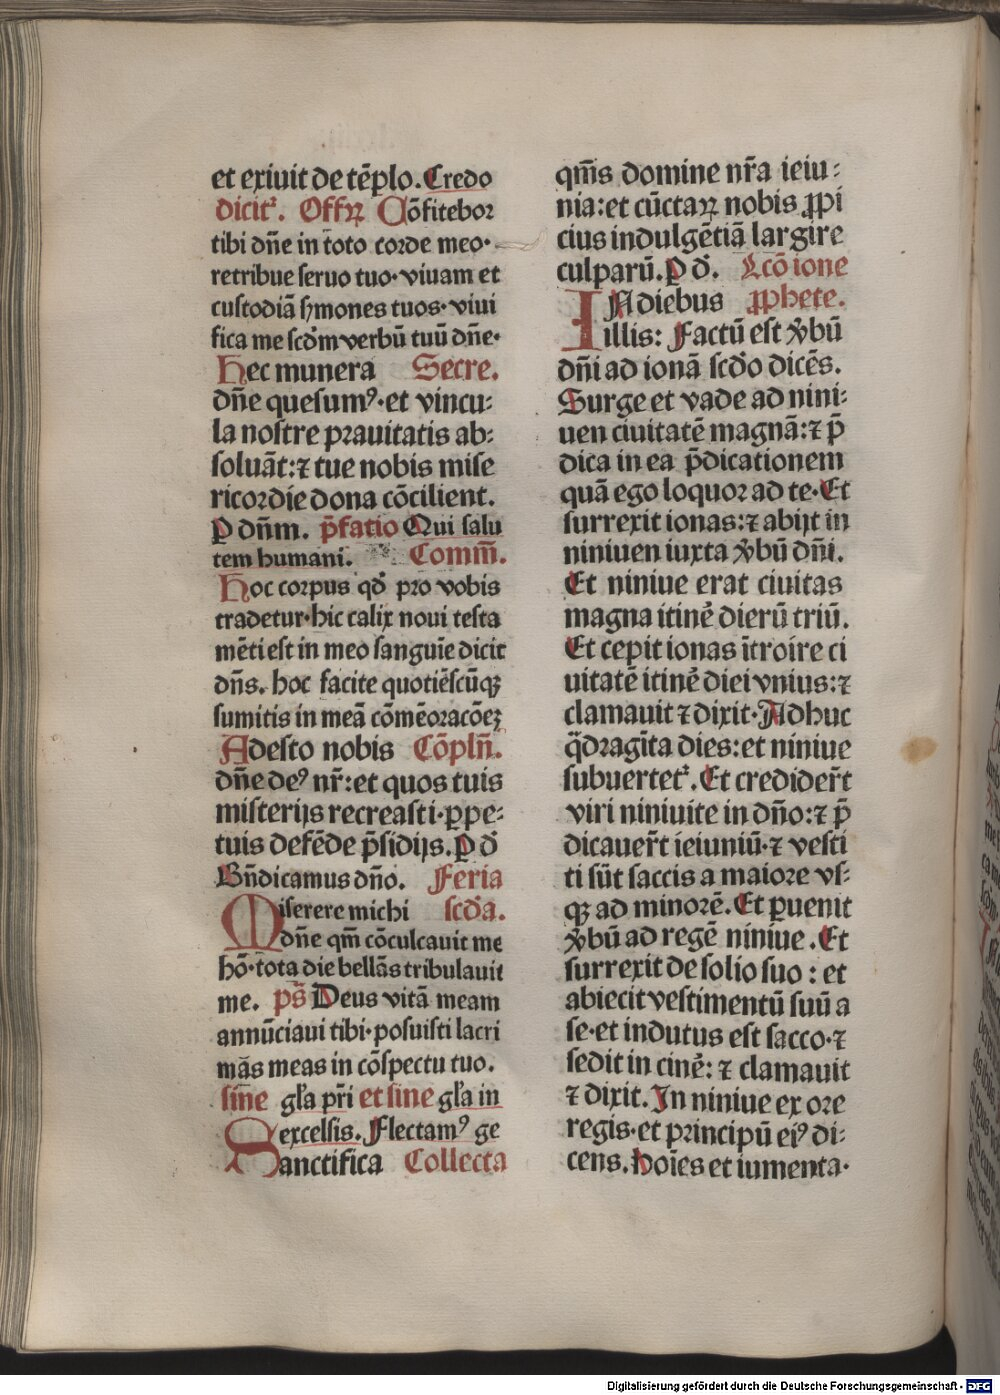 et exiuit de tēplo. Credo
dicitꝛ. Offꝝ Cōfitebor
tibi dn̄e in toto corde meo·
retribue seruo tuo· viuam et
custodiā sermones tuos· viui
fica me scd̄m verbū tuū dn̄e·
Hec munera Secre.
dn̄e quesumꝰ· et vincu⸗
la nostre prauitatis ab⸗
soluāt: ⁊ tue nobis mise
ricordie dona cōcilient.
P dn̄m. p̄fatio Qui salu
tem humani. Comm̄.
Hoc corpus qd̄ pro vobis
tradetur· hic calix noui testa
mēti est in meo sanguīe dicit
dn̄s. hoc facite quotiēscūqꝫ
sumitis in meā cōmēoracōeꝫ
Adesto nobis Cōpln̄.
dn̄e deꝰ nr̄: et quos tuis
misterijs recreasti· ꝑpe⸗
tuis defēde p̄sidijs. P d̄
Bn̄dicamus dn̄o. Feria
Miserere michi scd̄a.
dn̄e qm̄ cōculcauit me
hō· tota die bellās tribulauit
me. ps̄ Deus vitā meam
annūciaui tibi· posuisti lacri
mās meas in cōspectu tuo.
sine gl̄a pr̄i et sine gl̄a in
excelsis. Flectamꝰ ge
Sanctifica Collecta
qm̄s domine nr̄a ieiu⸗
nia: et cūctaꝝ nobis ꝓpi
cius indulgētiā largire
culparū. P d̄. Lcō ione
IN diebus ꝓphete.
illis: Factū est v̄bū
dn̄i ad ionā scd̄o dicēs.
Surge et vade ad nini⸗
uen ciuitatē magnā: ⁊ p̄
dica in ea p̄dicationem
quā ego loquor ad te· Et
surrexit ionas: ⁊ abijt in
niniuen iuxta v̄bū dn̄i.
Et niniue erat ciuitas
magna itinē dierū triū.
Et cepit ionas ītroire ci
uitatē itinē diei vnius: ⁊
clamauit ⁊ dixit· Adhuc
q̄dragīta dies: et niniue
subuertetꝛ. Et credider̄t
viri niniuite in dn̄o: ⁊ p̄
dicauer̄t ieiuniū· ⁊ vesti
ti sūt saccis a maiore vs⸗
qꝫ ad minorē. Et ꝑuenit
v̄bū ad regē niniue. Et
surrexit de solio suo: et
abiecit vestimentū suū a
se· et indutus est sacco· ⁊
sedit in cinē: ⁊ clamauit
⁊ dixit. In niniue ex ore
regis· et principū eiꝰ di⸗
cens. Hoīes et iumenta·
Digitalisierung gefördert durch die Deutsche Forschungsgemeinschaft - DFG